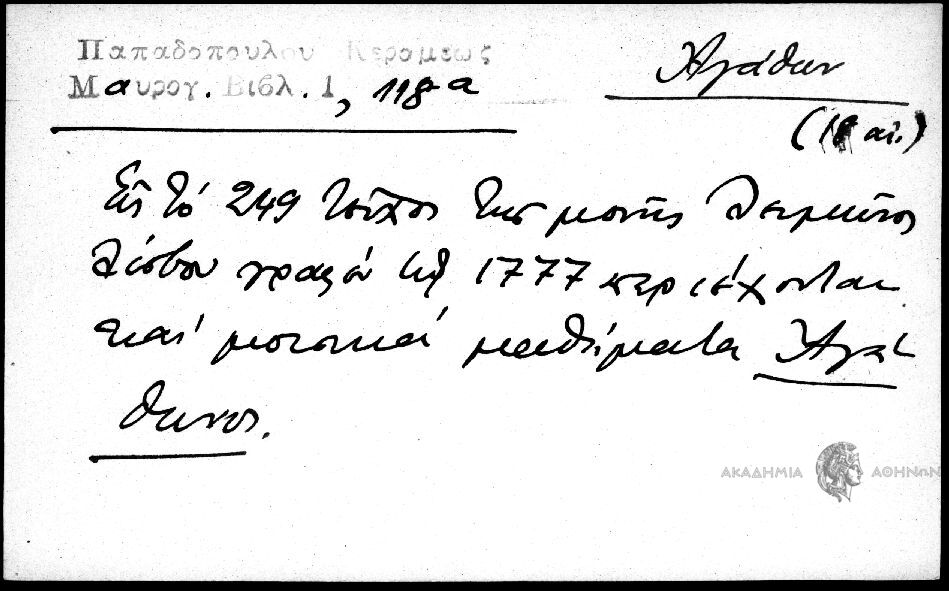 Παπαδοπούλου Κεραμέως
Μαυρογ. Βιβλ. 1, 118α
Ἀγάθων
( αἰ.)
Εἰς τὸ 249 τεῦχος τῆς μονῆς Λειμῶνος
Λέσβου γραφὲν τῷ 1777 περιέχονται
καὶ μουσικά μαθήματα Ἀγά
θωνος.
ΑΚΑΔΗΜΙΑ ΑΘΗΝΩΝ